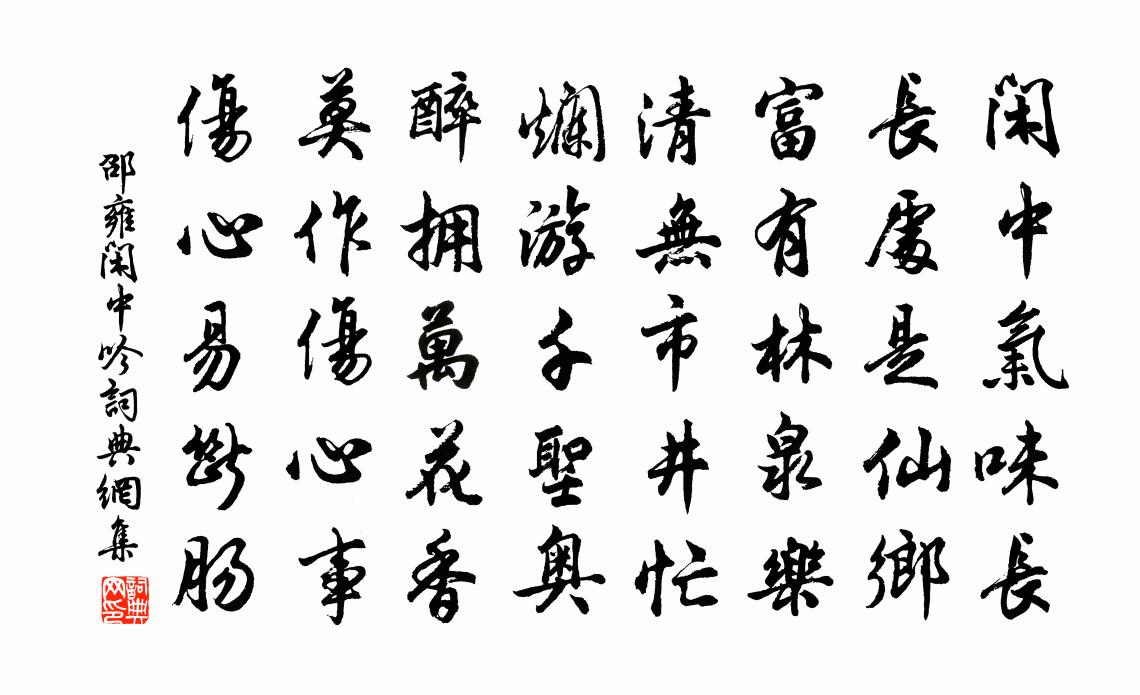 閑中氣味長
長處是仙鄉
富有林泉樂
清無市井忙
爛游千聖奧
醉拥萬花香
莫作傷心事
傷心易斷腸
邵雍閑中吟詞典網集
詞典
网印